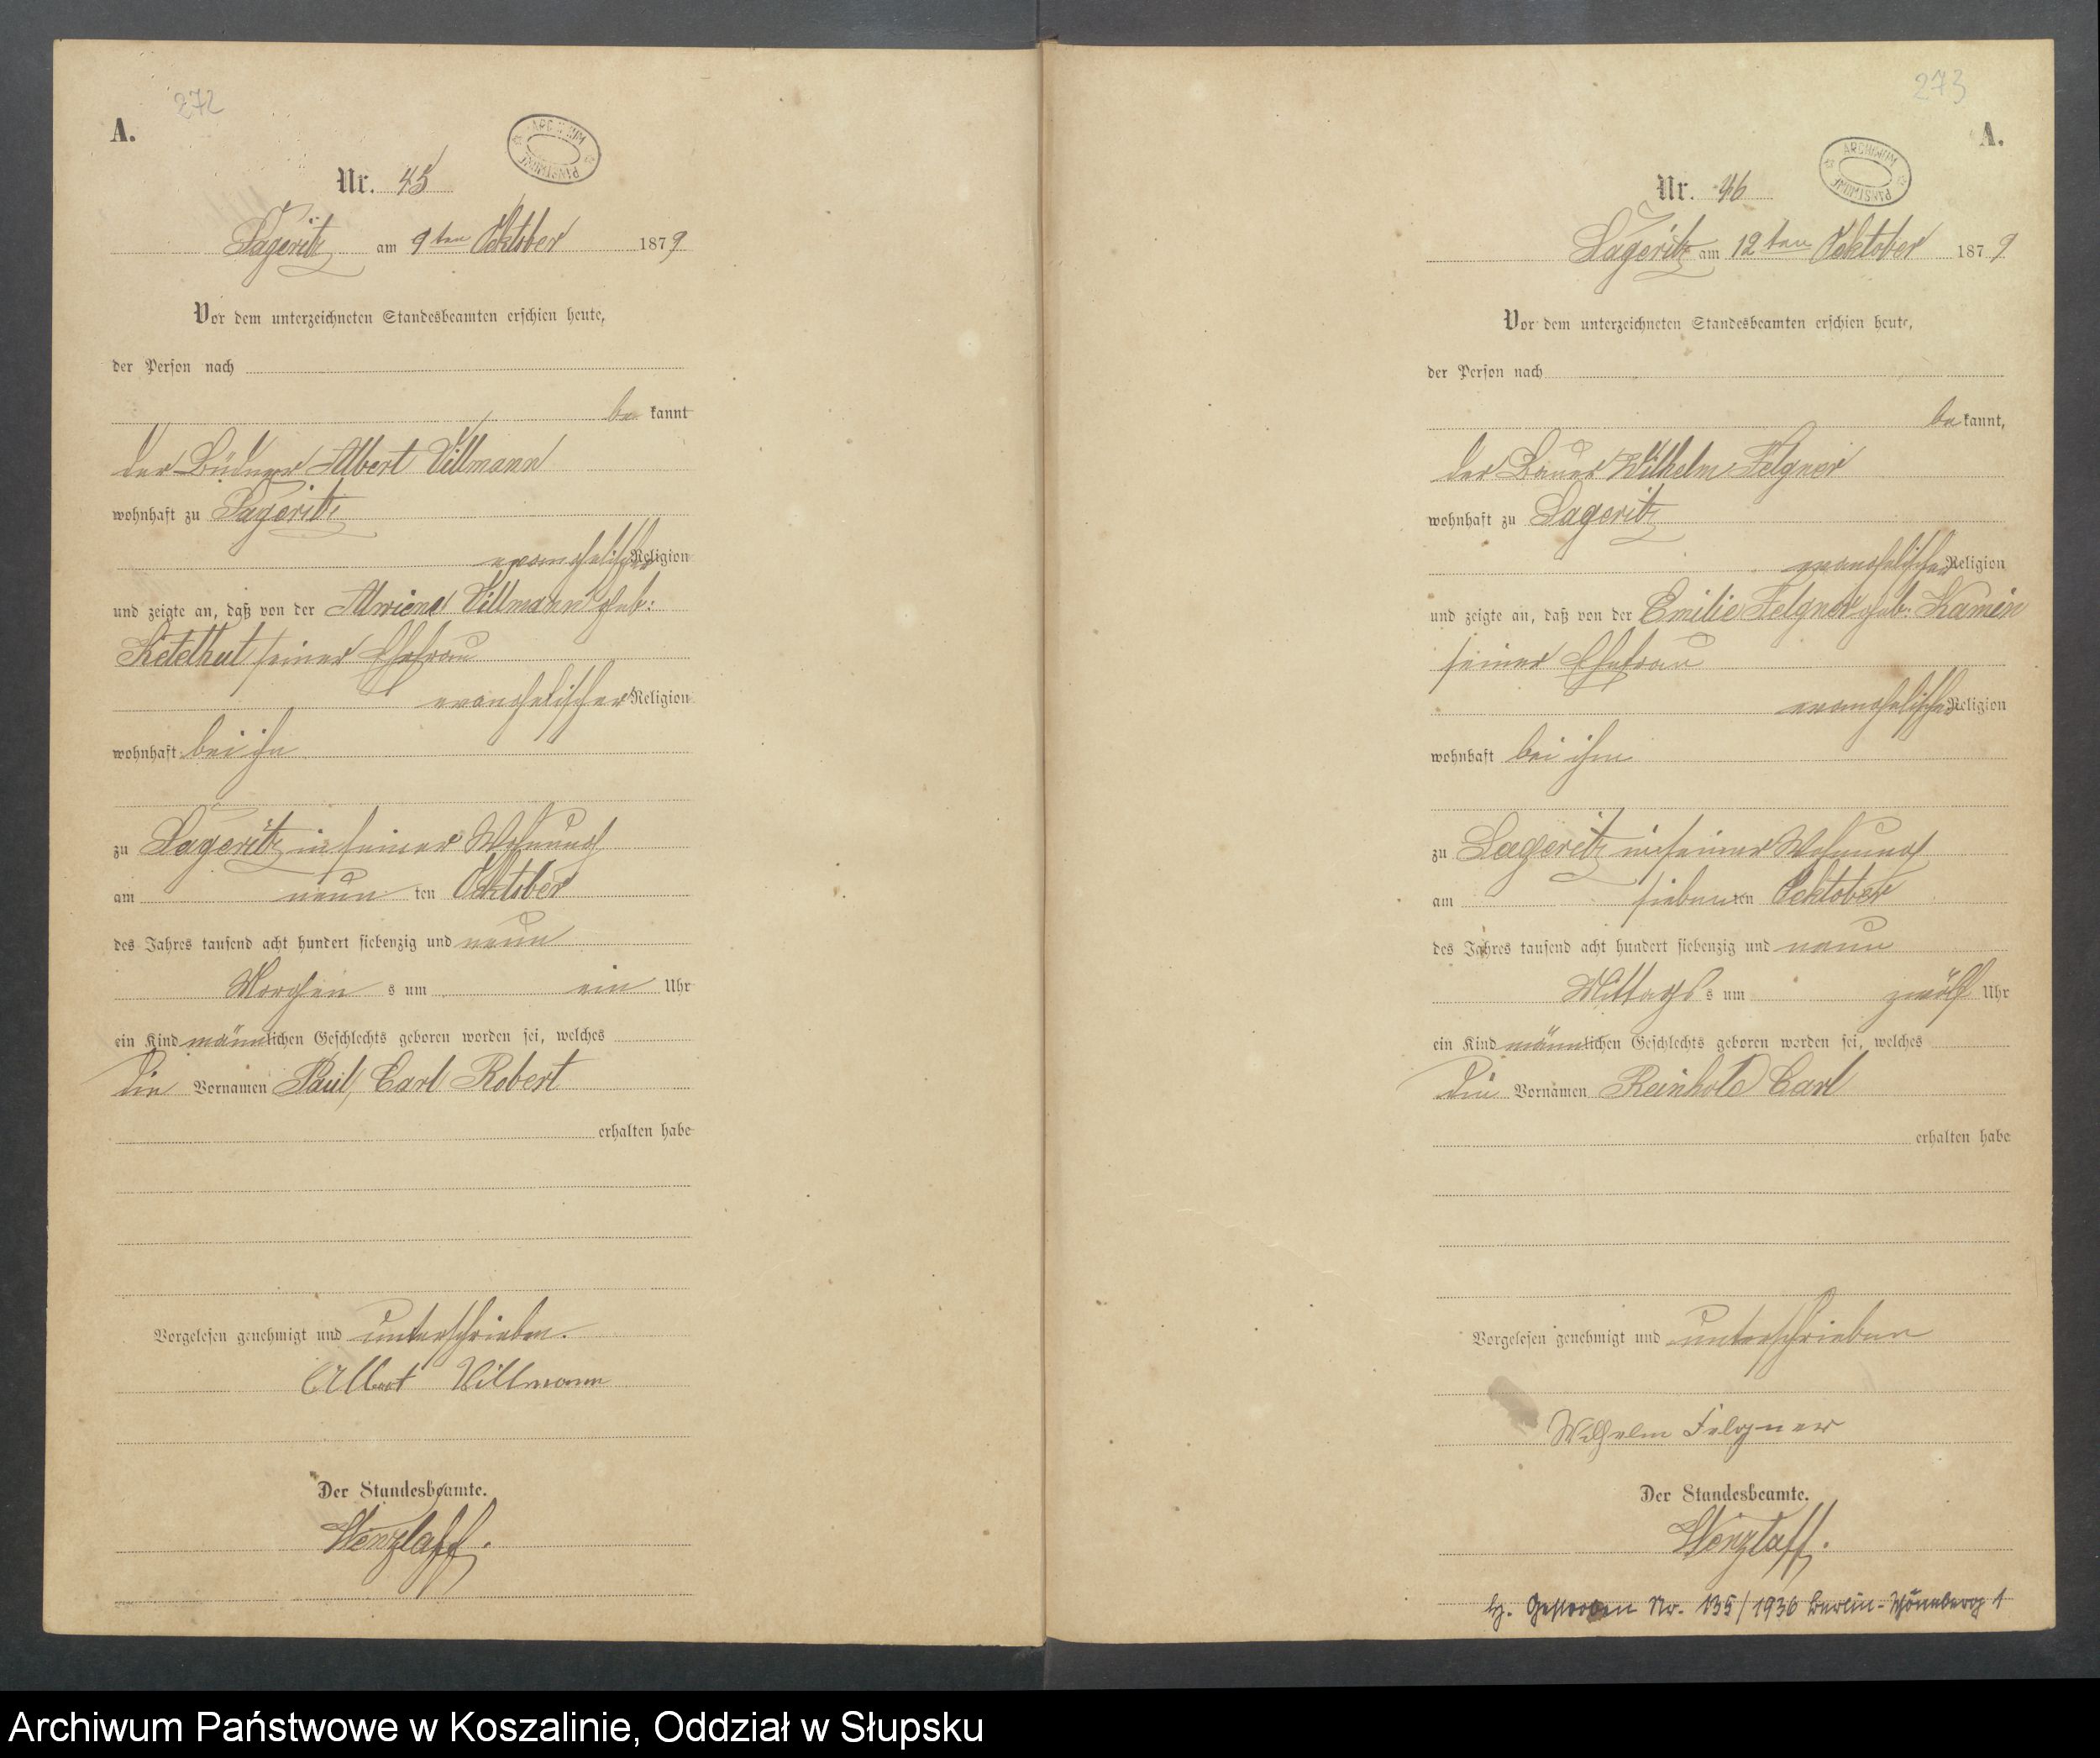 272
A.
ARCHIWUM PAŃSTWOWE
Nr. 45
Lageritz am 9ten Oktober 1879
Vor dem unterzeichneten Standesbeamten erschien heute,
der Person nach
be kannt
der Büdner Albert Villmann
wohnhaft zu Lageritz
evangelischer Religion
und zeigte an, daß von der Alwiene Villmann geb:
Ketelhut seiner Ehefrau
evangelischer Religion
wohnhaft bei ihm
zu Lageritz in seiner Wohnung
am neun ten Oktober
des Jahres tausend acht hundert siebenzig und neun
Morgen s um ein Uhr
ein Kind männlichen Geschlechts geboren worden sei, welches
die Vornamen Paul, Carl Robert
erhalten habe
Vorgelesen genehmigt und unterschrieben.
Albert Villmann
Der Standesbeamte.
Wenzlaff.
273
A.
ARCHIWUM PAŃSTWOWE
Nr. 46
Lageritz am 12ten Oktober 1879
Vor dem unterzeichneten Standesbeamten erschien heute,
der Person nach
be kannt,
der Bauer Wilhelm Felgner
wohnhaft zu Lageritz
evangelischer Religion
und zeigte an, daß von der Emilie Felgner geb. Kamin
seiner Ehefrau
evangelischer Religion
wohnhaft bei ihm
zu Lageritz in seiner Wohnung
am sieben ten Oktober
des Jahres tausend acht hundert siebenzig und neun
Mittags s um zwölf Uhr
ein Kind männlichen Geschlechts geboren worden sei, welches
die Vornamen Reinhold Carl
erhalten habe
Vorgelesen genehmigt und unterschrieben
Wilhelm Felgner
Der Standesbeamte.
Wenzlaff.
Gestorben Nr. 135/1936 Berlin-Schöneberg 1
Archiwum Państwowe w Koszalinie, Oddział w Słupsku